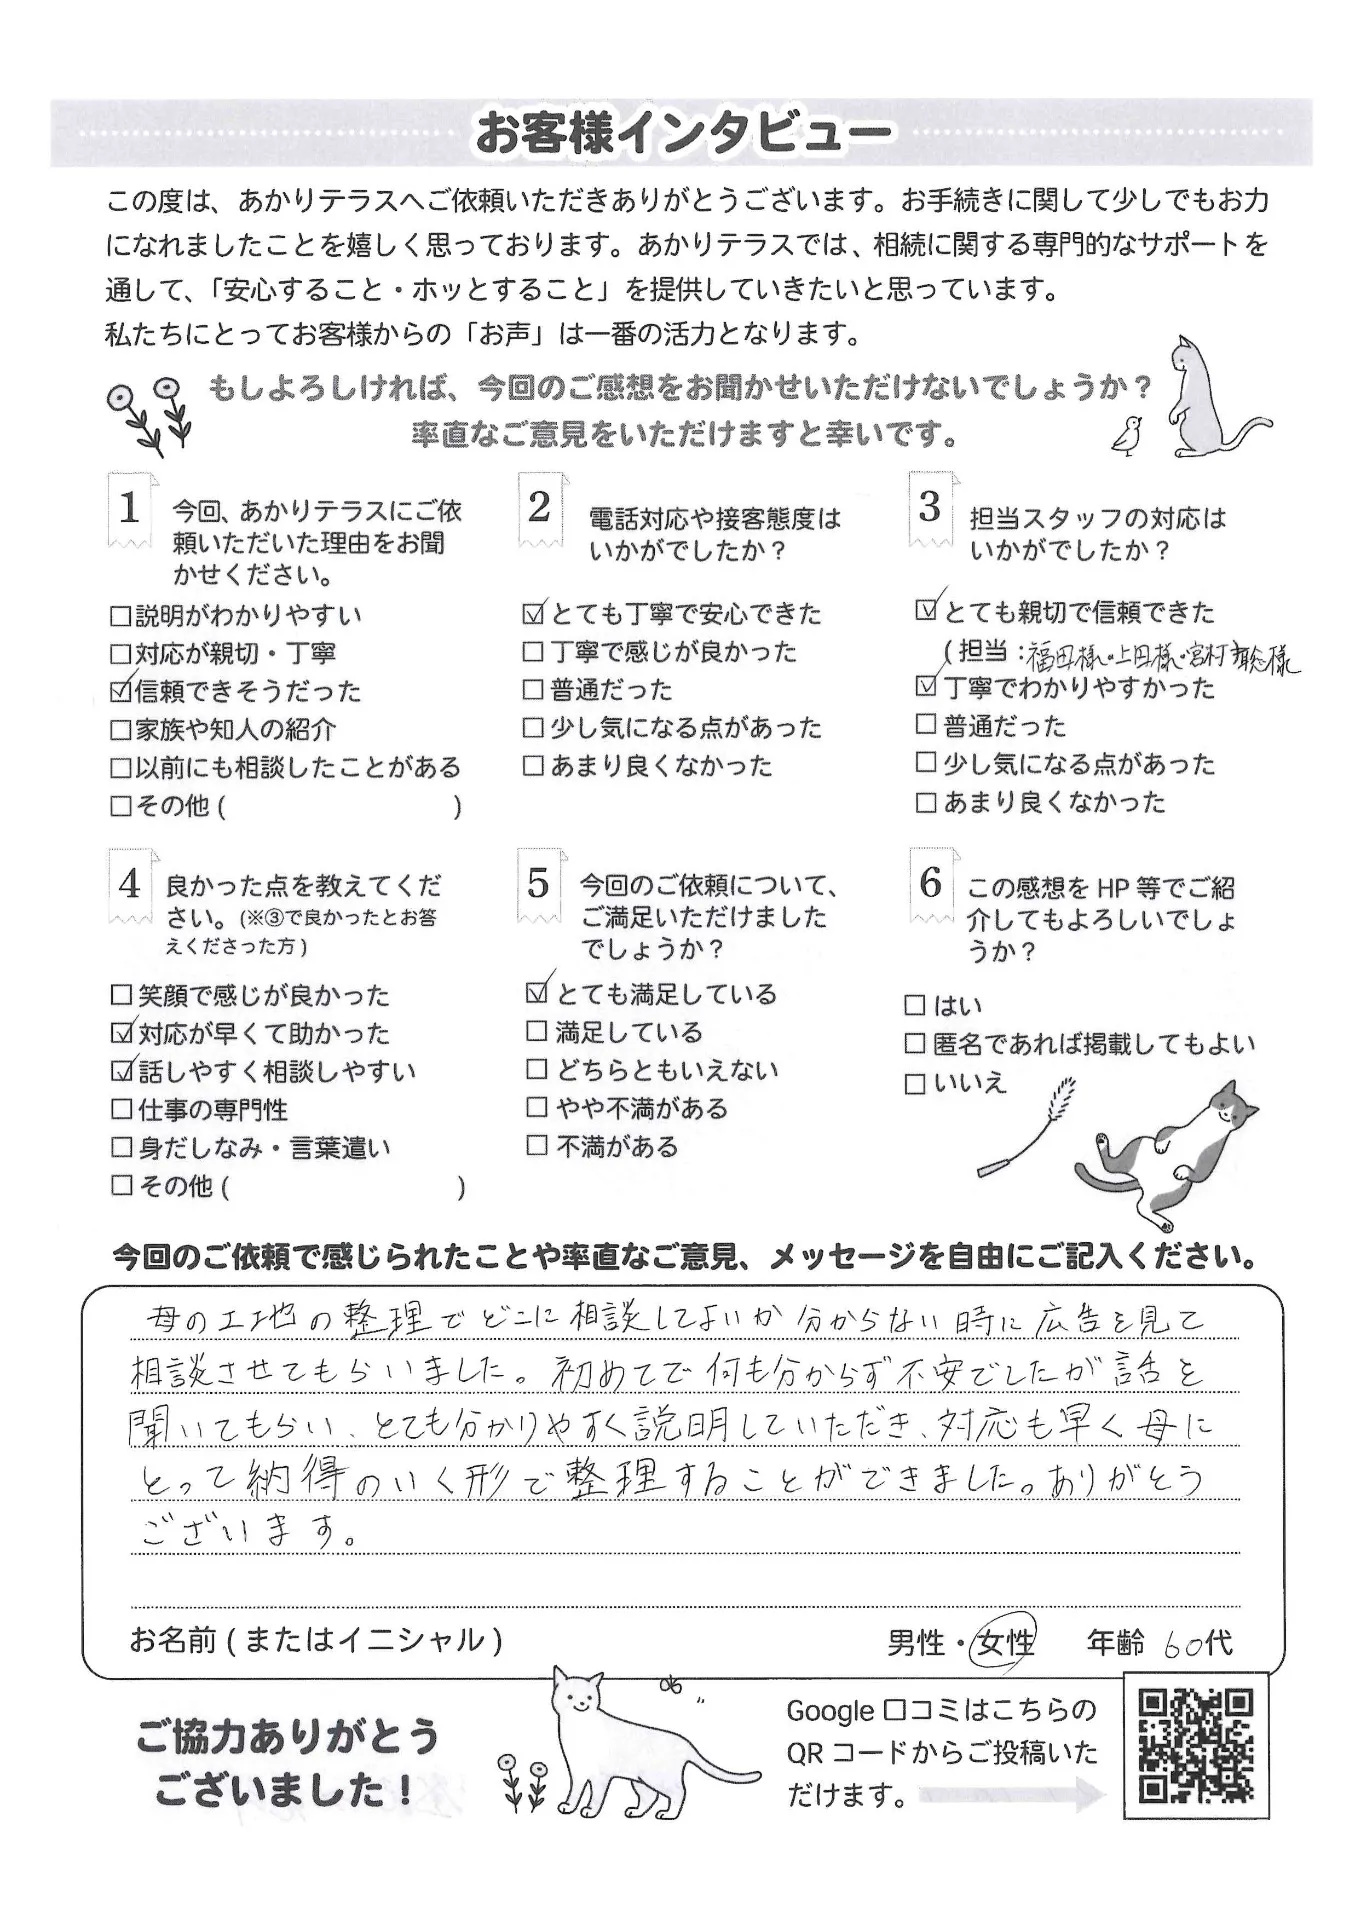 お客様インタビュー
この度は、あかりテラスへご依頼いただきありがとうございます。お手続きに関して少しでもお力
になれましたことを嬉しく思っております。あかりテラスでは、相続に関する専門的なサポートを
通して、「安心すること・ホッとすること」を提供していきたいと思っています。
私たちにとってお客様からの「お声」は一番の活力となります。
もしよろしければ、今回のご感想をお聞かせいただけないでしょうか?
率直なご意見をいただけますと幸いです。
1
今回、あかりテラスにご依
頼いただいた理由をお聞
かせください。
☐説明がわかりやすい
☐対応が親切・丁寧
☑信頼できそうだった
☐家族や知人の紹介
☐以前にも相談したことがある
☐その他 ( )
2
電話対応や接客態度は
いかがでしたか?
☑とても丁寧で安心できた
☐丁寧で感じが良かった
☐普通だった
☐少し気になる点があった
☐あまり良くなかった
3
担当スタッフの対応は
いかがでしたか?
☑とても親切で信頼できた
(担当:福田様・上田様・宮村 様
☑丁寧でわかりやすかった
☐普通だった
☐少し気になる点があった
☐あまり良くなかった
4
良かった点を教えてくだ
さい。(※③で良かったとお答
えくださった方)
☐笑顔で感じが良かった
☑対応が早くて助かった
☑話しやすく相談しやすい
☐仕事の専門性
☐身だしなみ・言葉遣い
☐その他 ( )
5
今回のご依頼について、
ご満足いただけました
でしょうか?
☑とても満足している
☐満足している
☐どちらともいえない
☐やや不満がある
☐不満がある
6
この感想を HP 等でご紹
介してもよろしいでしょ
うか?
☐はい
☐匿名であれば掲載してもよい
☐いいえ
今回のご依頼で感じられたことや率直なご意見、メッセージを自由にご記入ください。
母の土地の整理でどこに相談してよいか分からない時に広告を見て
相談させてもらいました。初めてで何も分からず不安でしたが話を
聞いてもらい、とても分かりやすく説明していただき、対応も早く母に
とって納得のいく形で整理することができました。ありがとう
ございます。
お名前 (またはイニシャル) 男性・女性 年齢 60代
ご協力ありがとう
ございました!
Google 口コミはこちらの
QR コードからご投稿いた
だけます。